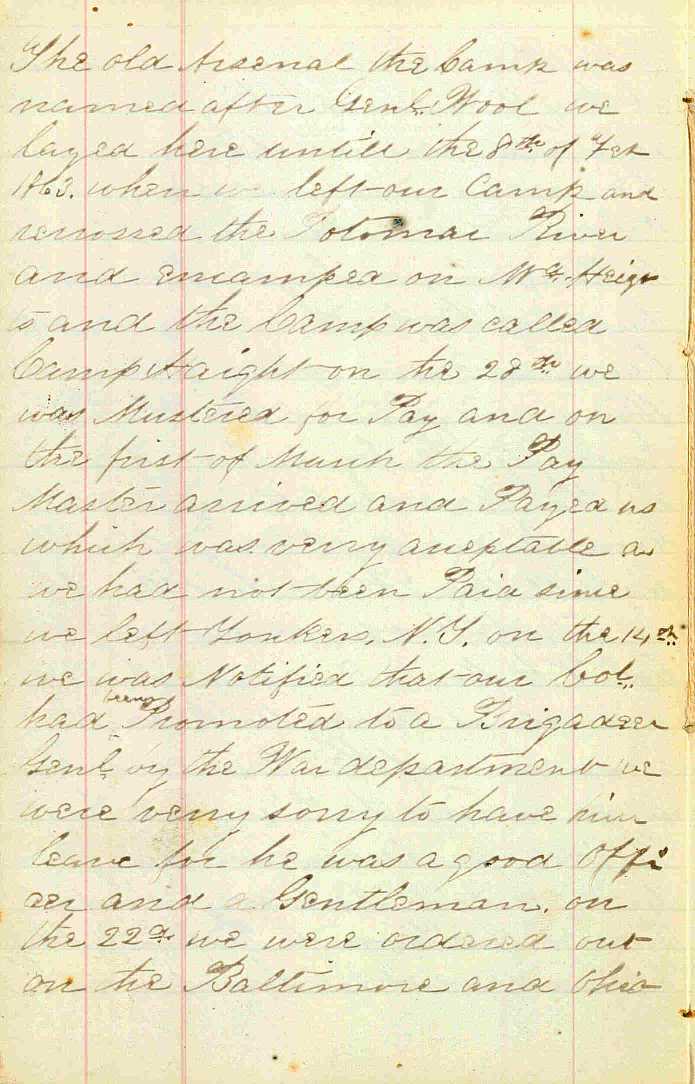 The old Arsenal the Camp was
named after Genl. Wool we
layed here untill the 8th of Feb
1863. when we left our Camp and
recrossed the Potomac River
and encamped on Md. Heigh
ts and the Camp was called
Camp Haight on the 28th we
was Mustered for Pay and on
the first of March the Pay
Master arrived and Payed us
which was verry acceptable as
we had not been Paid since
we left Yonkers, N.Y. on the 14th
we was Notified that our Col.
had been Promoted to a Brigadeer
Genl. by the War department we
were verry sorry to have him
leave for he was a good Offi
cer and a Gentleman. on
the 22d. we were ordered out
on the Baltimore and Ohio